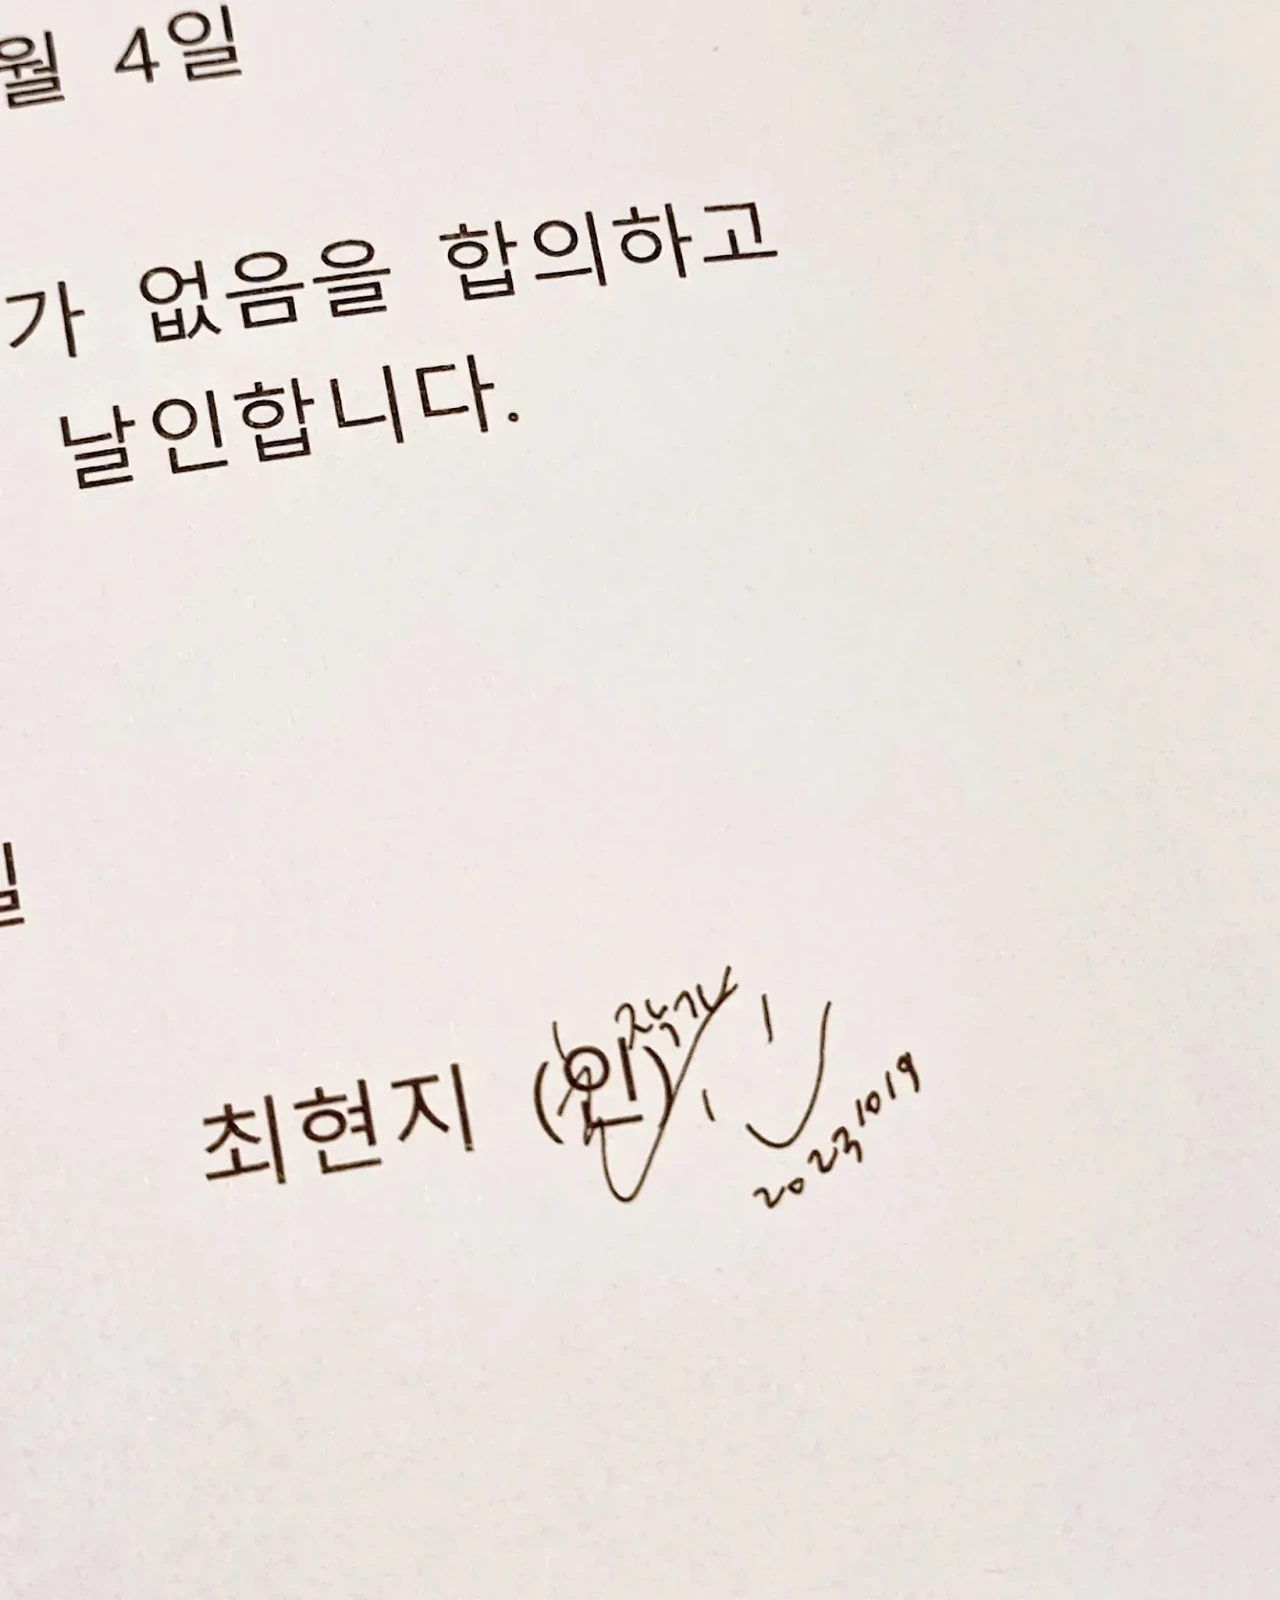 월 4일
가 없음을 합의하고
날인합니다.
일
최현지 (인)
20231019